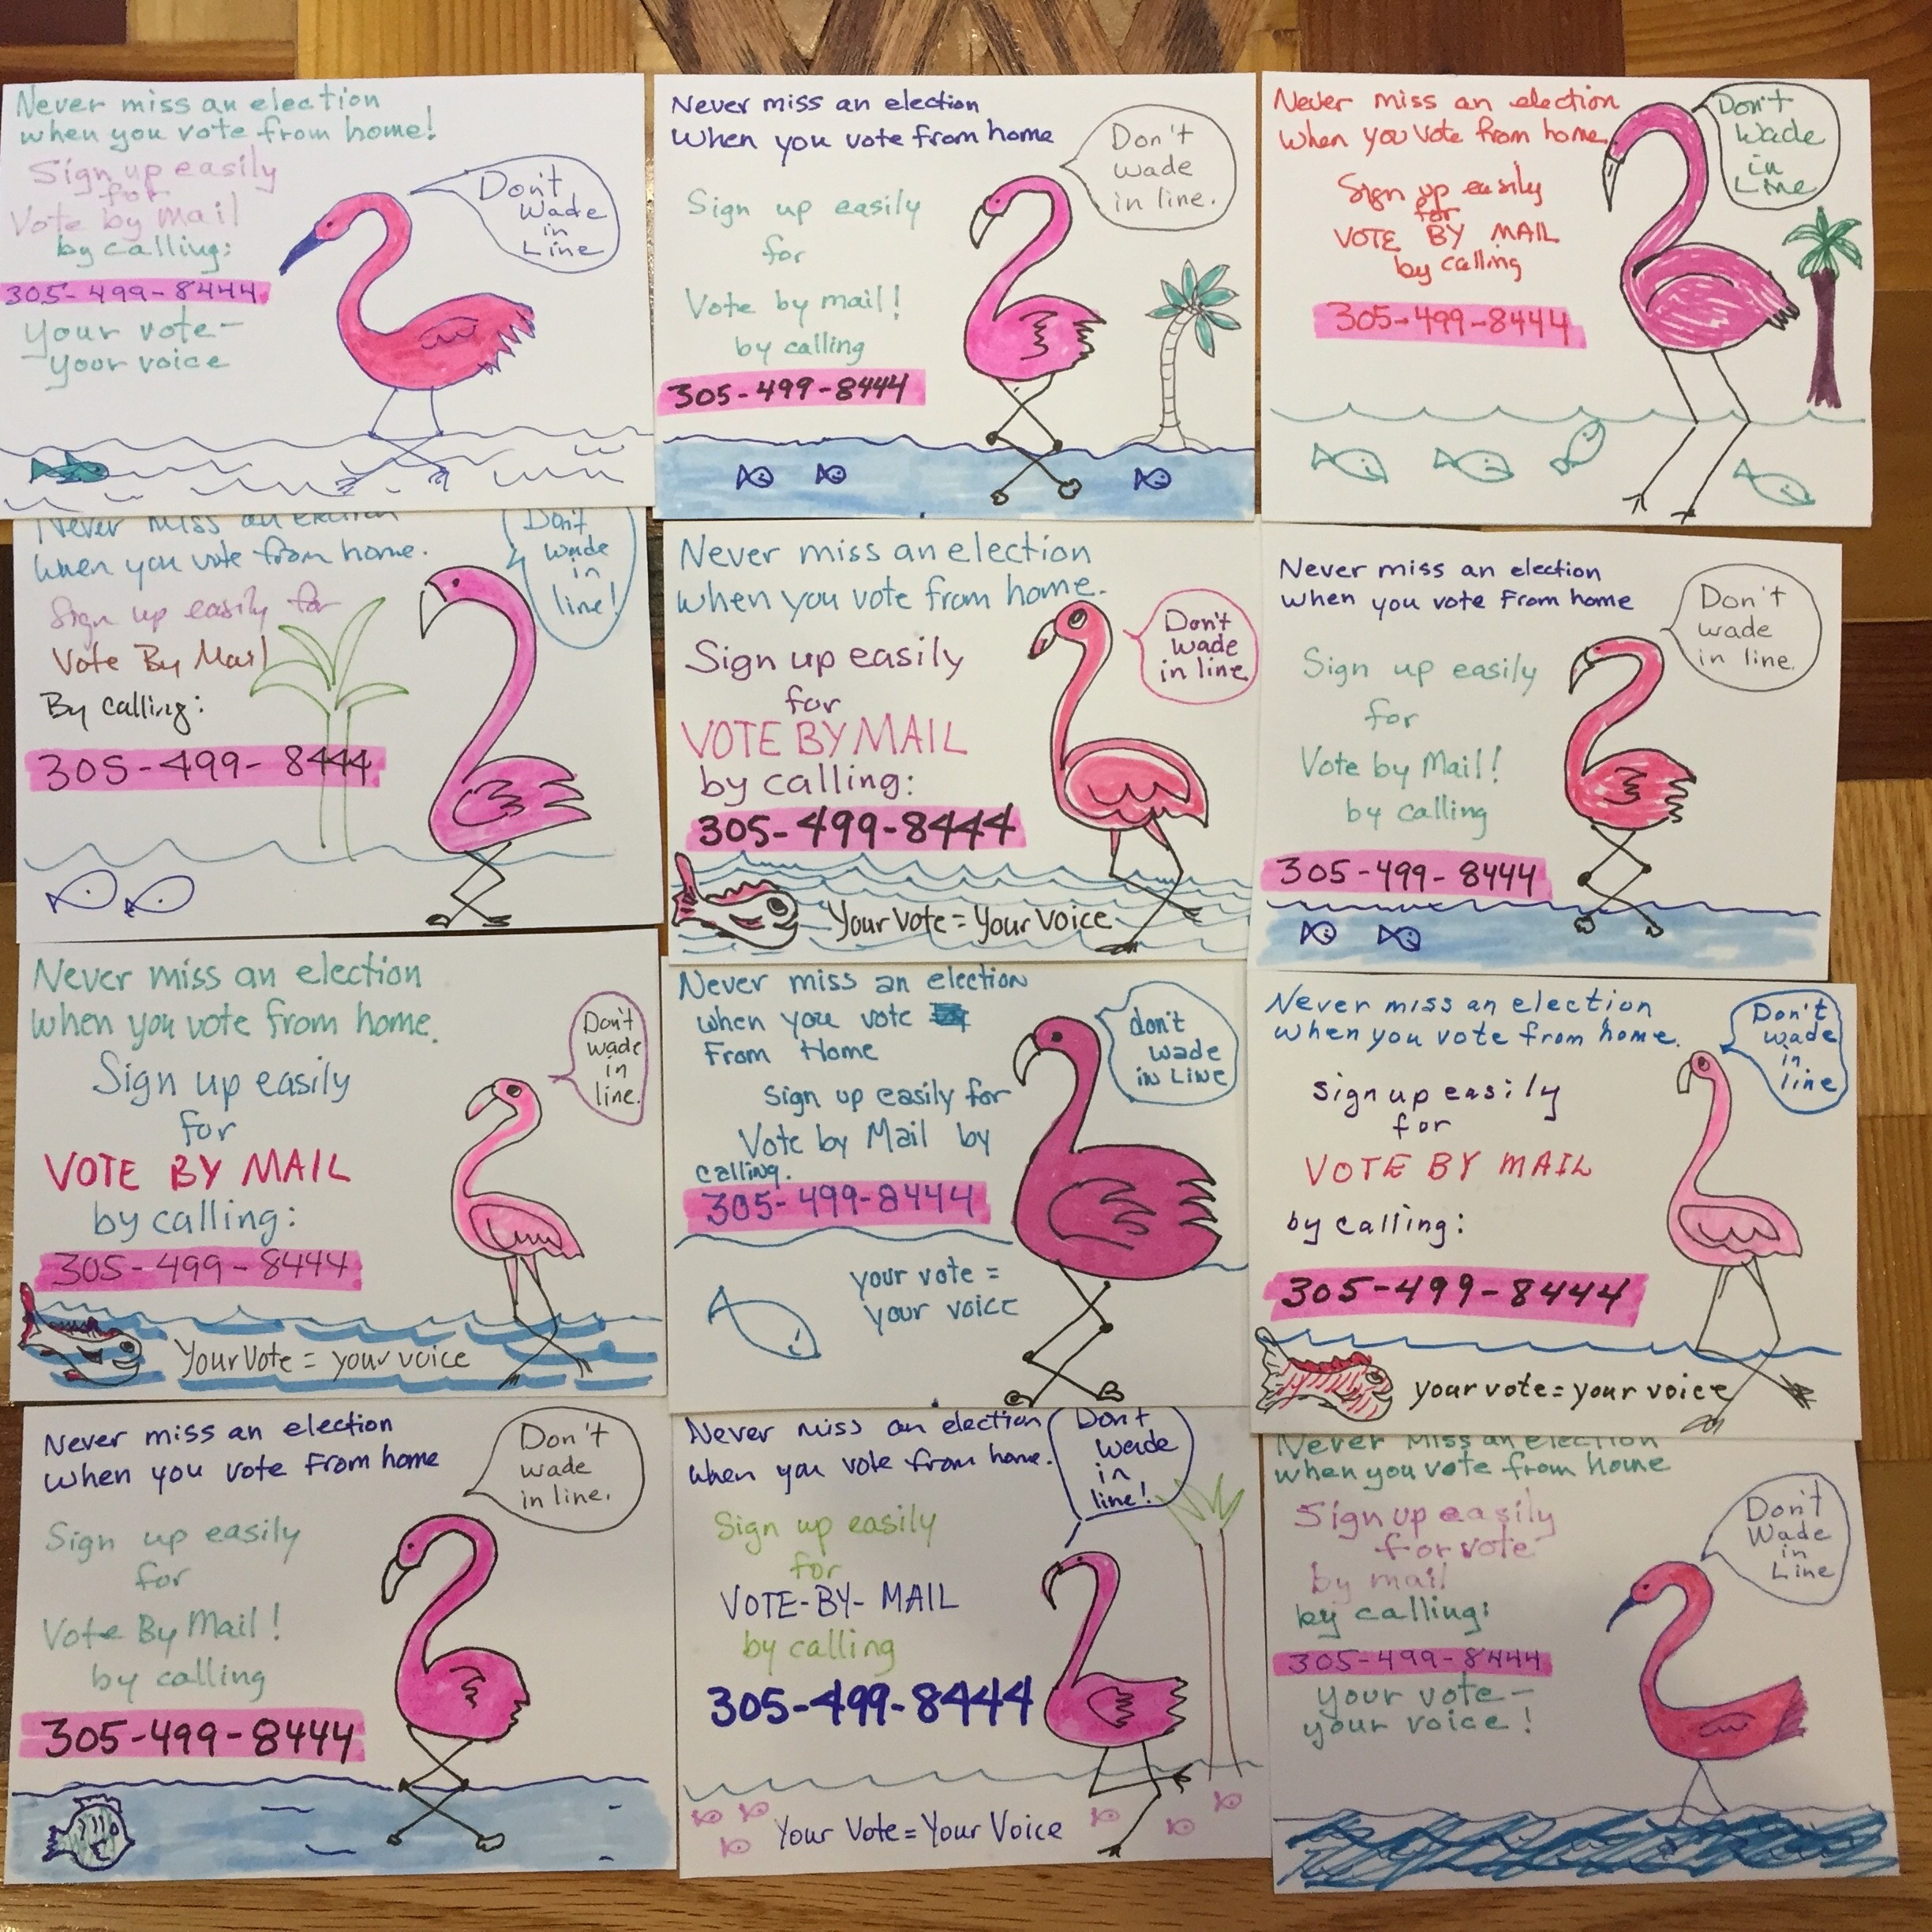 Never miss an election
when you vote from home!
Sign up easily
for
Vote by mail
by calling:
305-499-8444
Your vote-
your voice
Don't
Wade
in
Line
Never miss an election
When you vote from home
Sign up easily
for
Vote by mail!
by calling
305-499-8444
Don't
wade
in line.
Never miss an election
When you vote from home
Sign up easily
for
VOTE BY MAIL
by calling
305-499-8444
Don't
Wade
in
Line
Never miss an election
when you vote from home.
Sign up easily for
Vote By Mail
By calling:
305-499-8444
Don't
wade
in
line!
Never miss an election
when you vote from home.
Sign up easily
for
VOTE BY MAIL
by calling:
305-499-8444
Your Vote = Your Voice
Don't
wade
in line.
Never miss an election
When you vote From home
Sign up easily
for
Vote by Mail!
by calling
305-499-8444
Don't
wade
in line.
Never miss an election
when you vote from home.
Sign up easily
for
VOTE BY MAIL
by calling:
305-499-8444
Your Vote = your voice
Don't
wade
in
line.
Never miss an election
when you vote
From Home
Sign up easily for
Vote by Mail by
calling.
305-499-8444
your vote =
your voice
don't
wade
in LINE
Never miss an election
when you vote from home.
Sign up easily
for
VOTE BY MAIL
by calling:
305-499-8444
your vote = your voice
Don't
wade
in
line
Never miss an election
When you vote From home
Sign up easily
for
Vote By Mail!
by calling
305-499-8444
Don't
wade
in line.
Never miss an election
when you vote from home.
Sign up easily
for
VOTE-BY-MAIL
by calling
305-499-8444
Your Vote = Your Voice
Don't
wade
in
line!
Never miss an election
when you vote from home
Sign up easily
for vote
by mail
by calling:
305-499-8444
your vote-
your voice!
Don't
Wade
in
Line